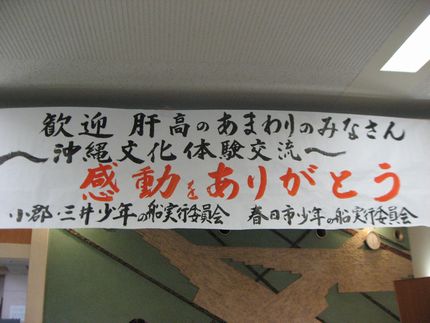 歓迎 肝高のあまわりのみなさん
～沖縄文化体験交流～
感動をありがとう
小郡・三井少年の船実行委員会 春日市少年の船実行委員会